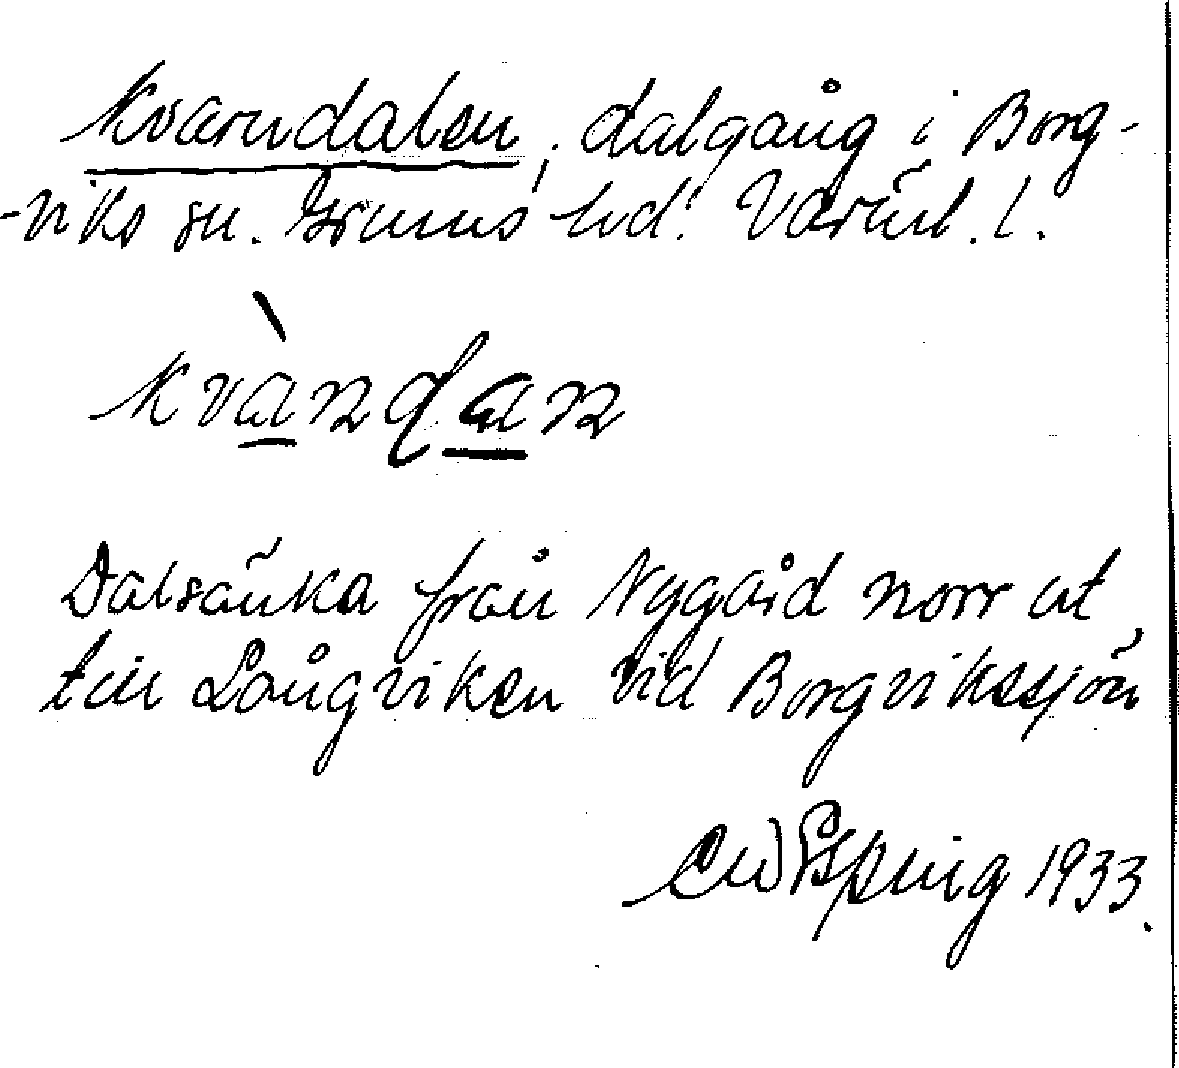 Kvarndalen, dalgång i Borg-
-viks sn. Grums hd. Värml. l.
kvàndan
Dalsänka från Nygård norr ut
till Långviken vid Borgvikssjön
CW Esping 1933.